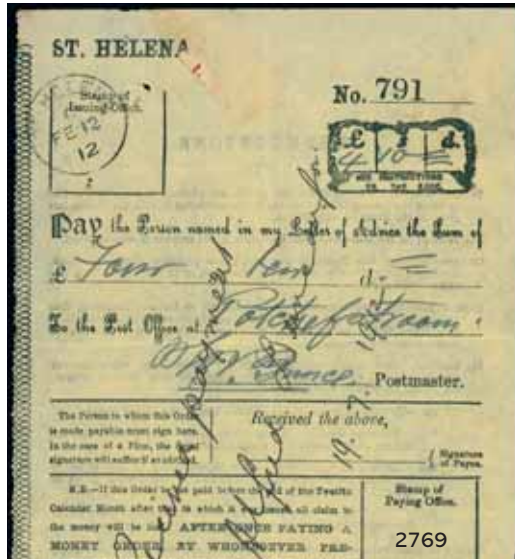 ST. HELENA
Stamp of
Issuing Office.
FE 12
12
No. 791
£ s d.
4 10 =
SEE INSTRUCTIONS
ON THE BACK.
Pay the Person named in my Letter of Advice the Sum of
£ Four ten d. =
To the Post Office at Potchefstroom.
Postmaster.
The Person to whom this Order
is made payable must sign here.
In the case of a Firm, the usual
signature will suffice
Received the above,
19. 7. 1912
Signature
of Payee.
N.B.—If this Order be not paid before the end of the Twelfth
Calendar Month after that in which it was issued all claim to
the money will be lost. AFTER ONCE PAYING A
MONEY ORDER, BY WHOMSOEVER PRE-
Stamp of
Paying Office.
2769